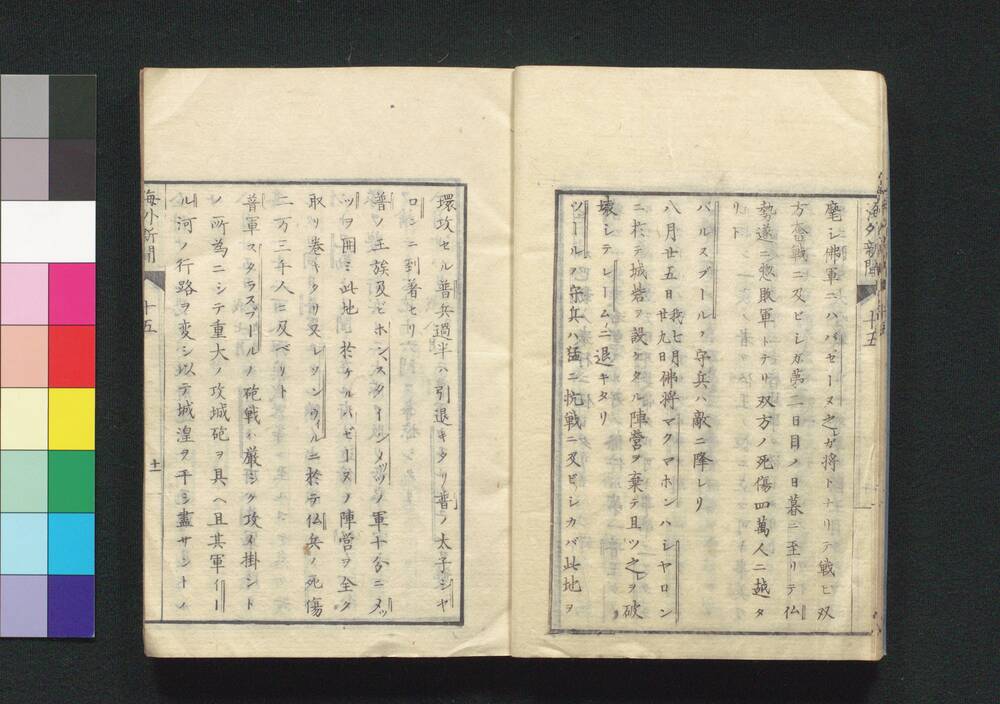 海外新聞 十五
麾シ佛軍ニハバゼーヌ之ガ将トナリテ戦ヒ双
方奮戦ニ及ビシガ第二日目ノ日暮ニ至リテ仏
勢遂ニ惣敗軍トナリ双方ノ死傷四萬人ニ越タ
リト
バルスブールク守兵ハ敵ニ降レリ
八月廿五日我七月廿九日佛将マクマホンハシヤロン
ニ於テ城砦ヲ設ケタル陣營ヲ棄テ且ツ之ヲ破
壊シテレームニ退キタリ
ツールノ守兵ハ猛ニ抗戦ニ及ビシカバ此地ヲ
環攻セル普兵過半ハ引退キタリ普ノ太子シヤ
ロンニ到著セリ
普ノ王族及ビホンスタインメッツノ軍十分ニメッ
ツヲ囲ミ此地ニ於ケルバゼーヌノ陣營ヲ全ク
取リ巻キタリ又レソンウィルニ於テ仏兵ノ死傷
二万三千人ニ及ベリト
普軍スタラスブールノ砲戦ハ厳シク攻メ掛シト
ノ所為ニシテ重大ノ攻城砲ヲ具ヘ且其軍イー
ル河ノ行路ヲ変シ以テ城湟ヲ平シ盡サントノ
海外新聞 十五 十一